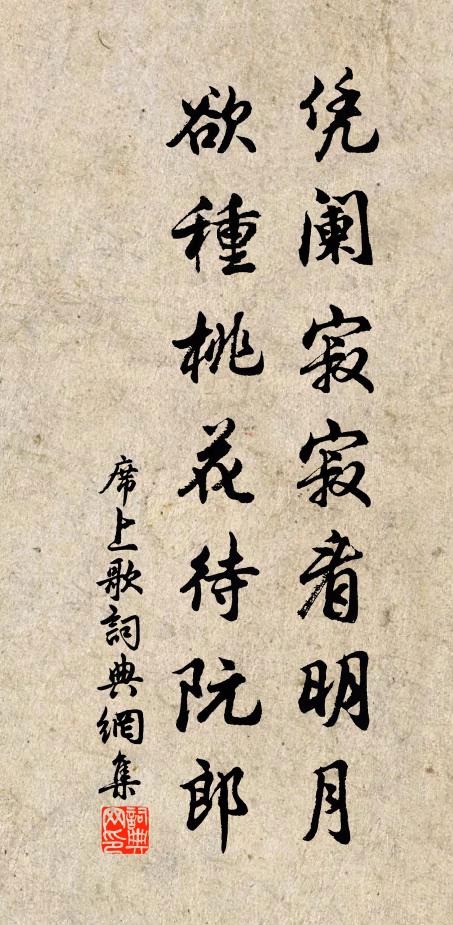 凭阑寂寂看明月
欲種桃花待阮郎
席上歌詞典網集
詞典網印